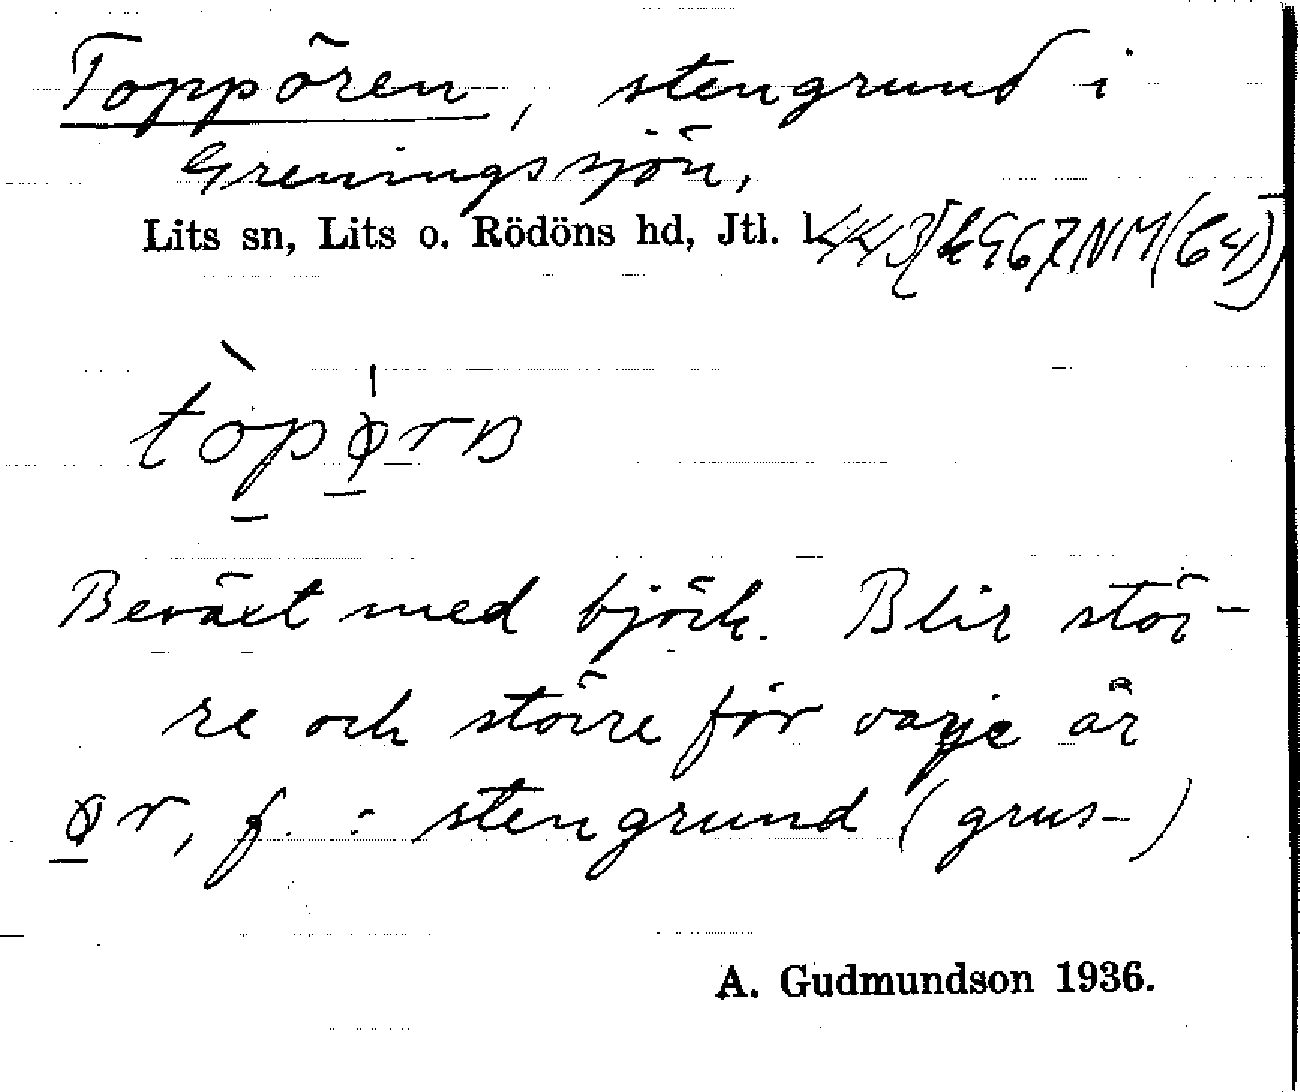 Toppören, stengrund i
Greningssjön,
Lits sn, Lits o. Rödöns hd, Jtl.
Beväxt med björk. Blir stör-
re och större för varje år
ør, f. : stengrund (grus-)
A. Gudmundson 1936.